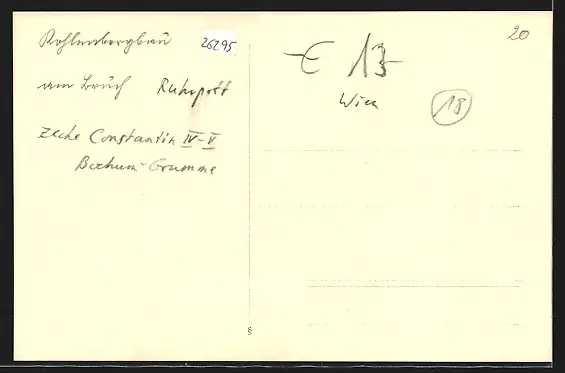 Kohlenbergbau
am Bruch Ruhrpott
Zeche Constantin IV-V
Bochum-Grumme
26295
€ 13-
Wien
18
20
§